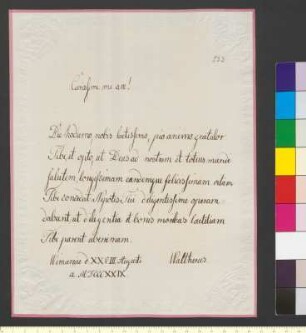 Carissime mi ave!
De hodierno nobis laetissimo, pio animo gratulor
Tibi, et opto, ut Deus ad nostram et totius mundi
salutem longissimam eandemque felicissimam vitam
Tibi concedat. Nepotes Tui diligentissime operam
dabunt, ut diligentia et bonis moribus laetitiam
Tibi parent aeternam.
Vimariae d XXVIII Augusti
a MDCCCXXIX.
Waltherus